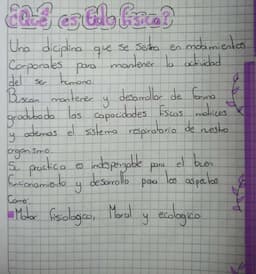 ¿Qué es Edo física?
Una diciplina que se sentra en movimientos
Corporales para mantener la actividad
del ser humano.
Buscan mantener y desarrollar de forma
graduada las capacidades físcas motices
y ademas el sistema respiratorio de nuestro
organismo.
Su practica es indispensable para el buen
funcionamiento y desarrollo para los aspectos
Como:
Motor, fisologico, Moral y ecologico